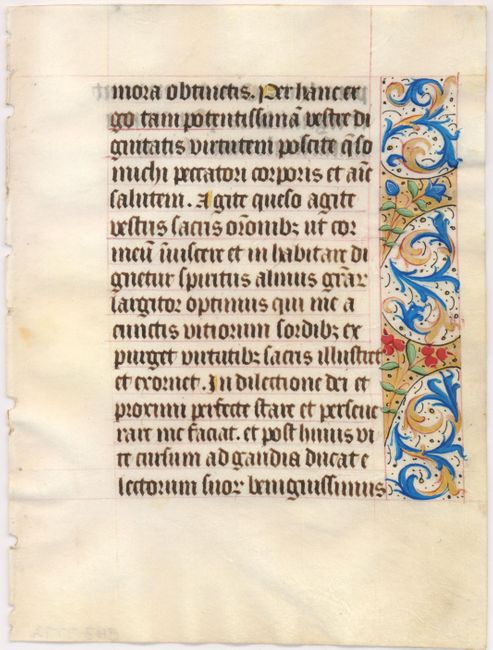 mora obtinetis. Per hanc er
go tam potentissimā vestre di
gnitatis virtutem poscite q̄so
michi peccatori corporis et aīe
salutem. Agite queso agite
vestris sacris orōnibꝫ ut cor
meū īuisere et in habitare di
gnetur spiritus almus grār̄
largitor optimus qui me a
cunctis vitiorum sordibꝫ ex
purget virtutibꝫ sacris illustret
et exornet. In dilectione dei et
proximi perfecte stare et perseue
rare me faciat. et post huius vi
te cursum ad gaudia ducat e
lectorum suor benignissimus